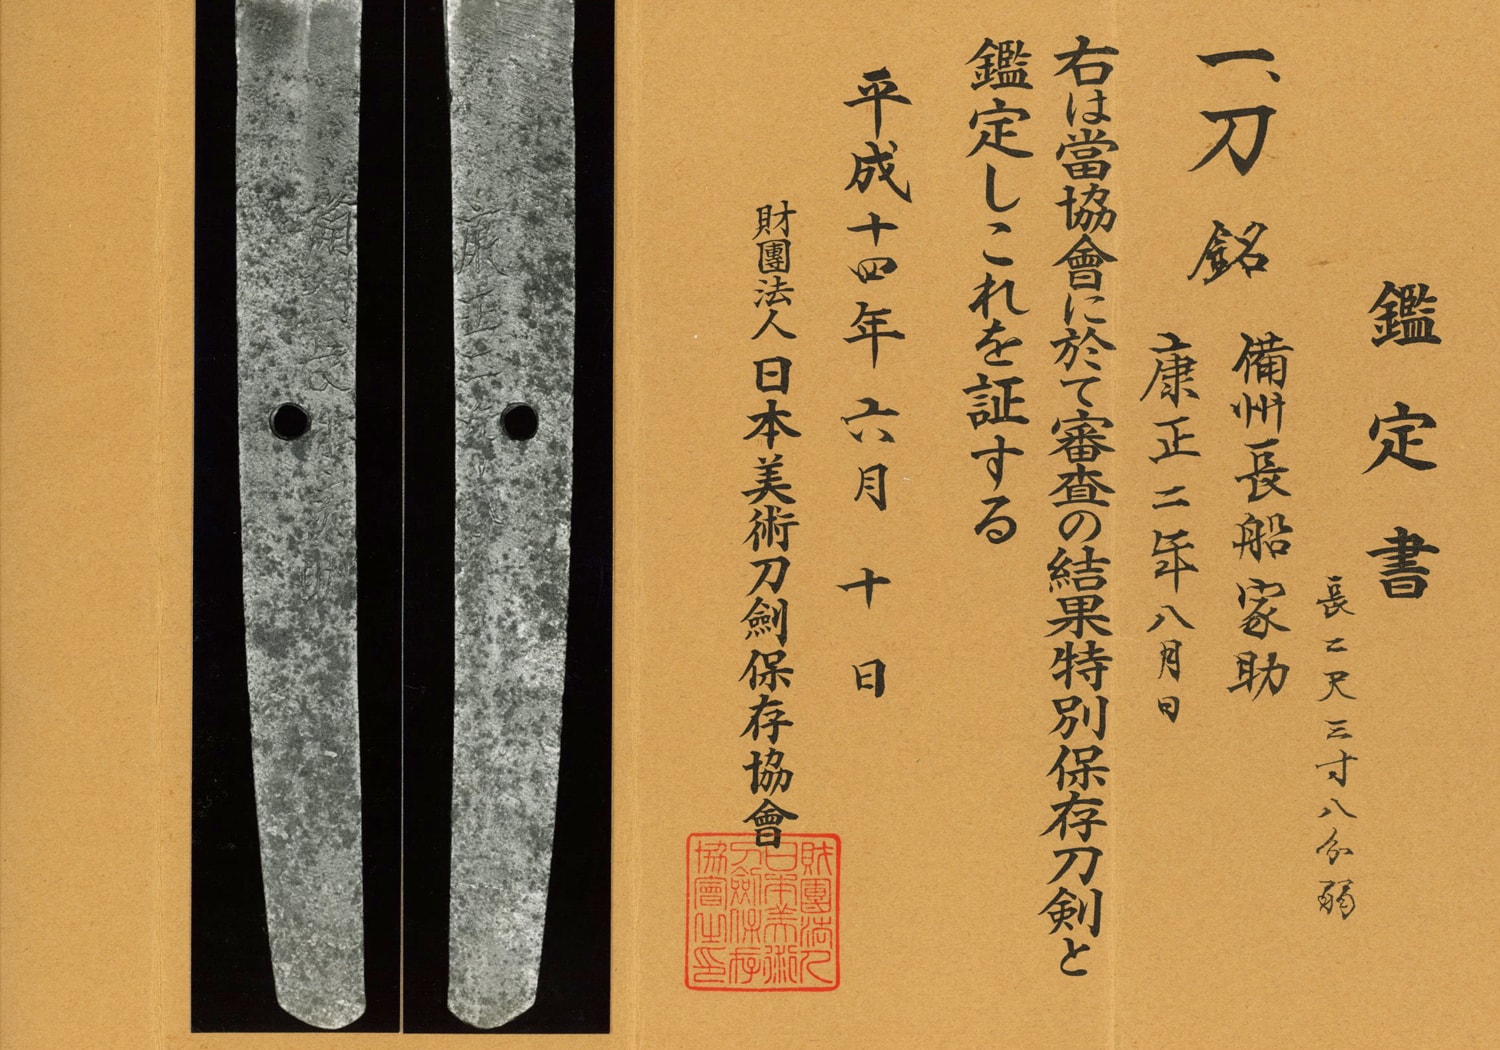 鑑定書
長二尺三寸八分弱
一、刀 銘
備州長船家助
康正二年八月日
右は當協會に於て審査の結果特別保存刀剣と
鑑定しこれを証する
平成十四年六月十日
財團法人 日本美術刀劍保存協會
財團法人
日本美術
刀劍保存
協會之印
康正二